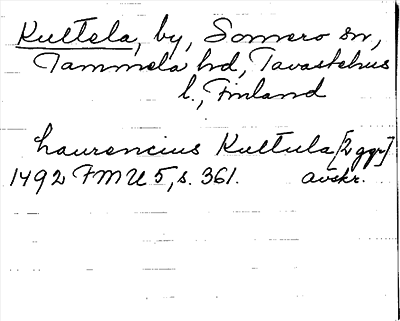 Kultela, by, Somero sn,
Tammela hd, Tavastehus
l., Finland
Laurencius Kultula [2 ggr]
1492 FMU 5, s. 361. avskr.